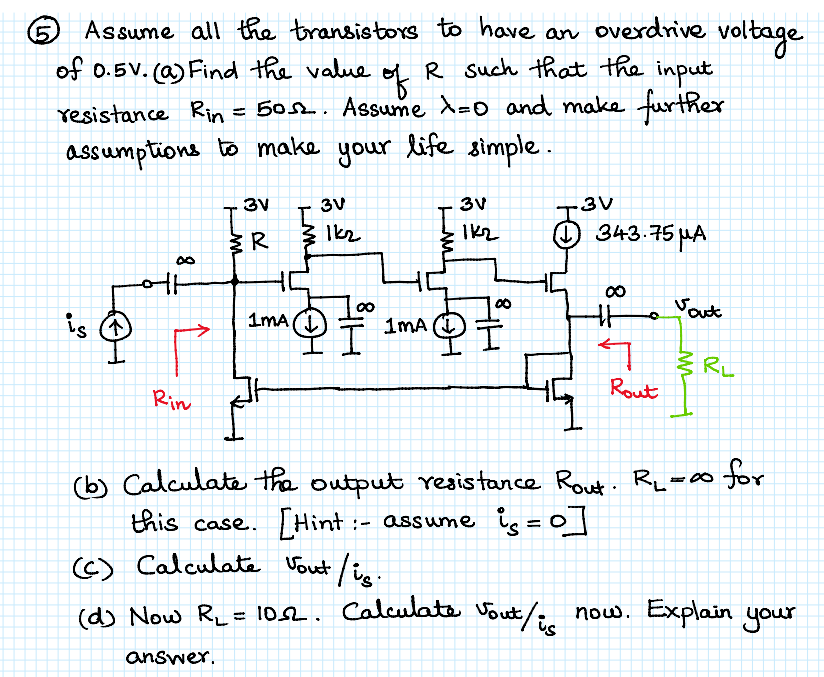 ⑤ Assume all the transistors to have an overdrive voltage
of 0.5V. (a) Find the value of R such that the input
resistance Rin = 50Ω. Assume λ=0 and make further
assumptions to make your life simple.
3V 3V 3V 3V
R 1kΩ 1kΩ 343.75 μA
∞
is 1mA ∞ 1mA ∞ ∞ Vout
Rin Rout RL
(b) Calculate the output resistance Rout. RL=∞ for
this case. [Hint :- assume is = 0]
(c) Calculate Vout/is.
(d) Now RL = 10Ω. Calculate Vout/is now. Explain your
answer.